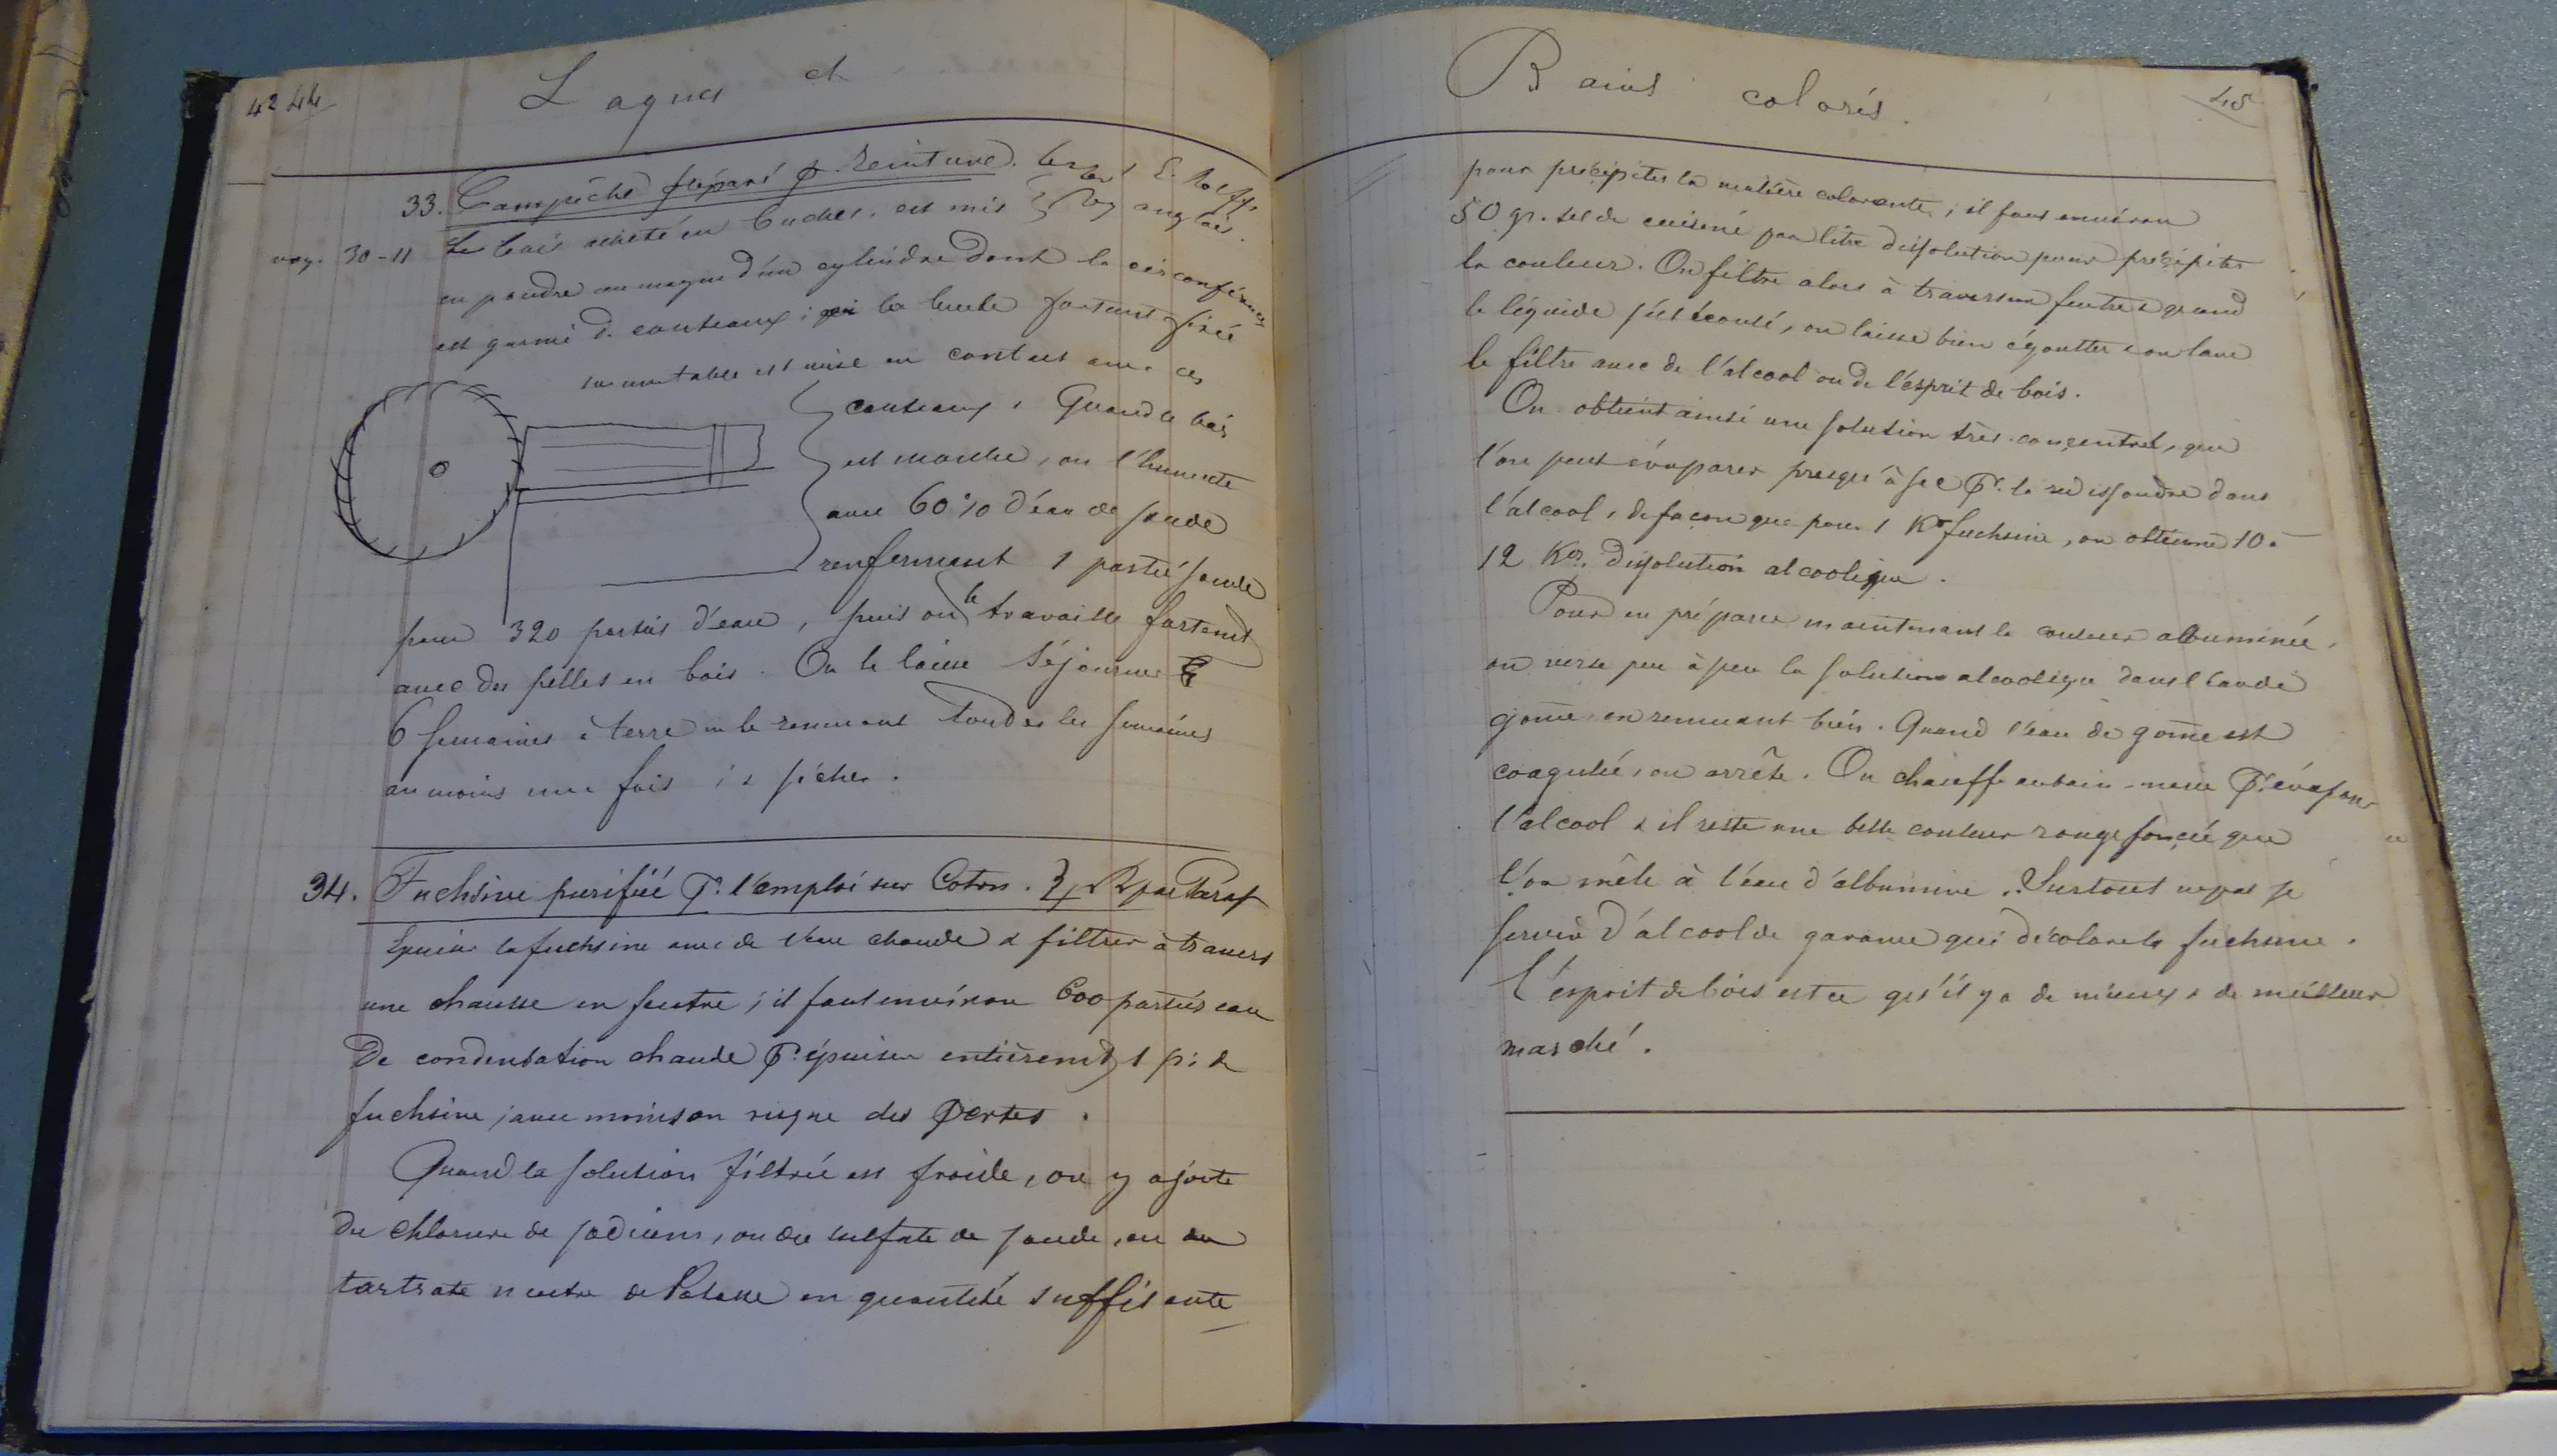 42 44
Laques et
33. Campêche préparé pr. teinture.
anglais.
voy. 30-11 Le bois acheté en buches, est mis
en poudre au moyen d'un cylindre dont la circonférence
est garnie de couteaux; la buche fortemt fixée
sur une table est mise en contact avec ces
couteaux. Quand le bois
est moulu, on l'humecte
avec 60 % d'eau de soude
renfermant 1 partie soude
pour 320 parties d'eau, puis on le travaille fortemt
avec des pelles en bois. On le laisse séjourner
6 semaines à terre en le remuant toutes les semaines
au moins une fois; & sécher.
34. Fuchsine purifiée pr. l'emploi sur Coton. par Paraf
Epuiser la fuchsine avec de l'eau chaude & filtrer à travers
une chausse en feutre; il faut environ 600 parties eau
de condensation chaude pr. épuiser entièremt 1 p: de
fuchsine; avec moins on risque des pertes.
Quand la solution filtrée est froide, on y ajoute
du chlorure de sodium, ou du sulfate de soude, ou du
tartrate neutre de Potasse en quantité suffisante
Bains colorés.
45
pour précipiter la matière colorante; il faut environ
50 gr. sel de cuisine par litre dissolution pour précipiter
la couleur. On filtre alors à travers un feutre & quand
le liquide s'est écoulé, on laisse bien égoutter & on lave
le filtre avec de l'alcool ou de l'esprit de bois.
On obtient ainsi une solution très-concentrée, que
l'on peut évaporer presqu'à sec pr. la redissoudre dans
l'alcool, de façon que pour 1 Ko fuchsine, on obtienne 10 à
12 Kos. dissolution alcoolique.
Pour en préparer maintenant la couleur albuminée,
on verse peu à peu la solution alcoolique dans l'eau de
gome en remuant bien. Quand l'eau de gome est
coagulée, on arrête. On chauffe au bain-marie pr. évaporer
l'alcool & il reste une belle couleur rouge foncée que
l'on mêle à l'eau d'albumine. Surtout ne pas se
servir d'alcool de garance qui décolore la fuchsine.
L'esprit de bois est ce qu'il y a de mieux & de meilleur
marché.